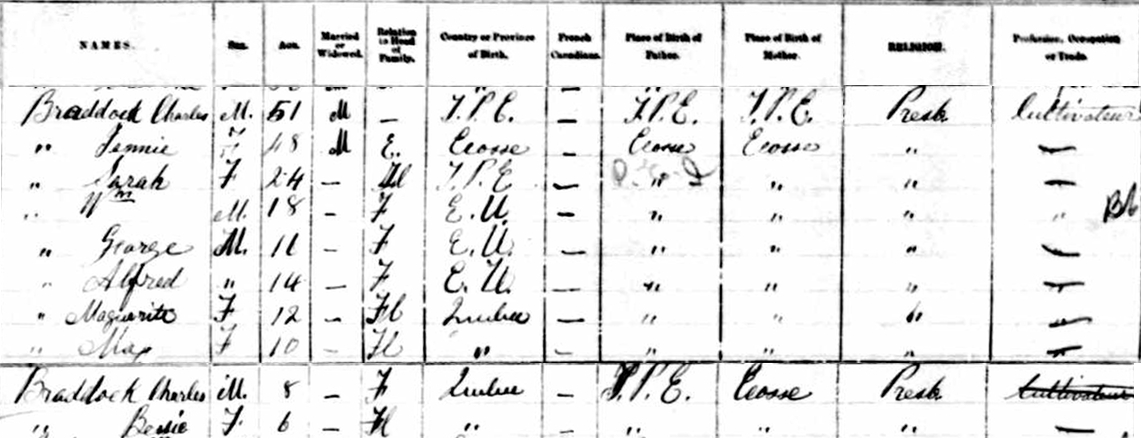 NAMES. Sex. Age. Married or Widowed. Relation to Head of Family. Country or Province of Birth. French Canadians. Place of Birth of Father. Place of Birth of Mother. RELIGION. Profession, Occupation or Trade.
Braddock Charles M. 51 M — I.P.E. — I.P.E. I.P.E. Presb Cultivateur
" Jennie F 48 M E. Ecosse — Ecosse Ecosse " —
" Sarah F 24 — Fll I.P.E — P.E.I " " " —
" Wm M. 18 — F E.U. — " " " "
" George M. 16 — F E.U. — " " " —
" Alfred " 14 — F E.U. — " " " —
" Maguerite F 12 — Fl Quebec — " " " —
" May F 10 — Fl " — " " " —
Braddock Charles M. 8 — F Quebec — I.P.E. Ecosse Presb Cultivateur
" Bessie F. 6 — Fl " — " " " —